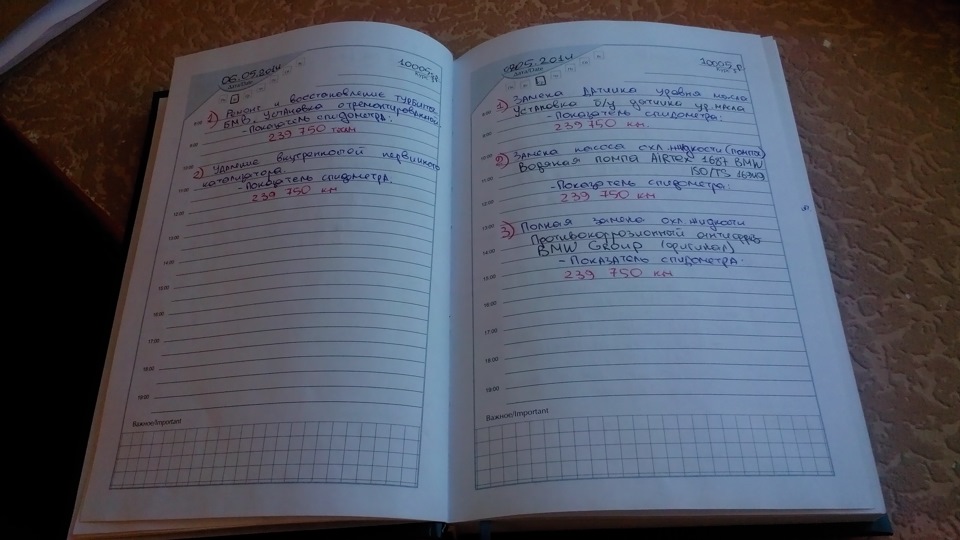 06.05.2014
Дата/Date
10005 др.
Курс
1) Ремонт и восстановление турбины
8:00
БМВ, установка отремонтированной.
- Показатель спидометра:
9:00
239 750
10:00
2) Удаление внутренностей первичного
катализатора.
11:00
- Показатель спидометра:
239 750 км
12:00
13:00
14:00
15:00
16:00
17:00
18:00
19:00
Важное/Important
05.2014
Дата/Date
Курс
1) Замена датчика уровня масла
8:00
Установка б/у датчика ур. масла
- Показатель спидометра:
9:00
239 750 км.
10:00
2) Замена насоса охл. жидкости (помпа)
Водяная помпа AIRTEX 1687 BMW
11:00
ISO/TS
- Показатель спидометра:
12:00
239 750 км
13:00
3) Полная замена охл. жидкости
Противокоррозионный антифриз
14:00
BMW Group (оригинал)
- Показатель спидометра:
15:00
239 750 км
16:00
17:00
18:00
19:00
Важное/Important